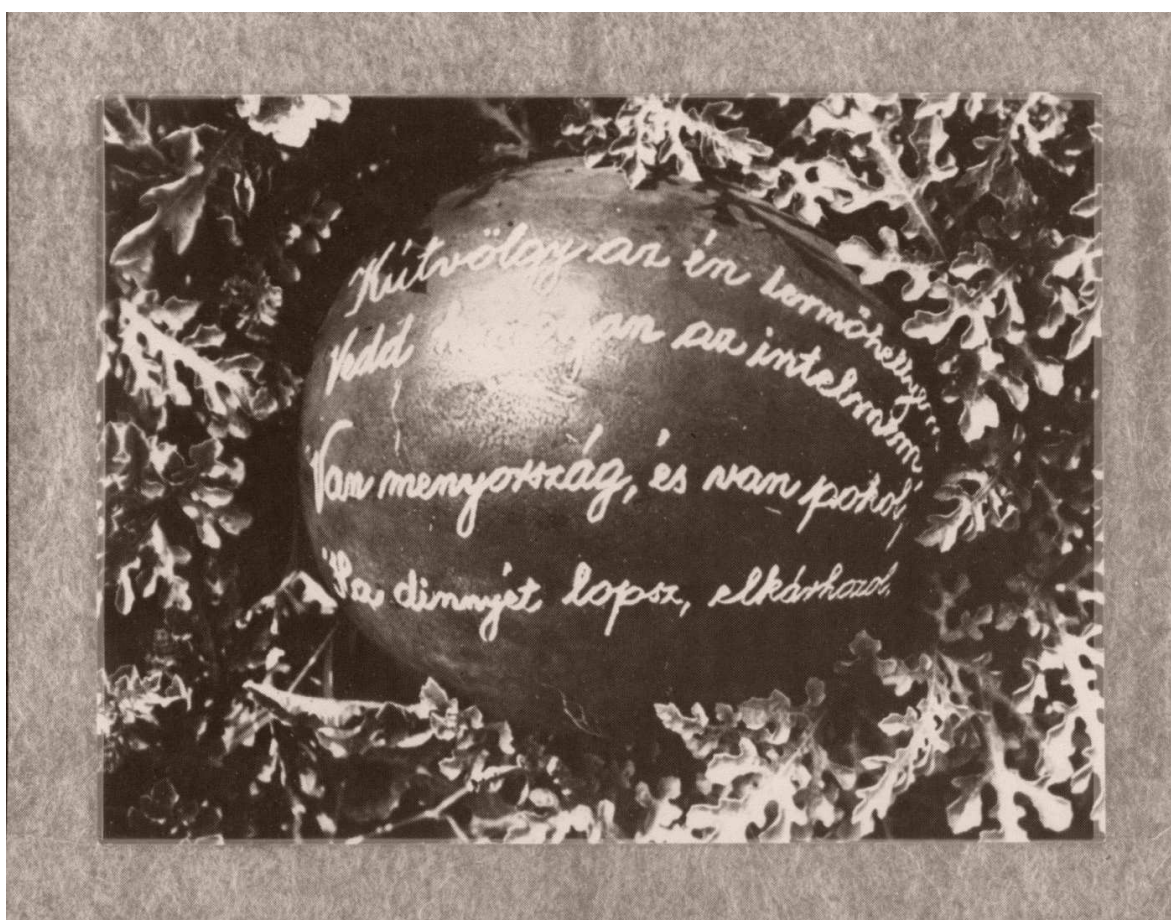 Kútvölgy az én termőhelyem
Vedd az intelmem
Van menyország, és van pokol,
Ha dinnyét lopsz, elkárhozol.